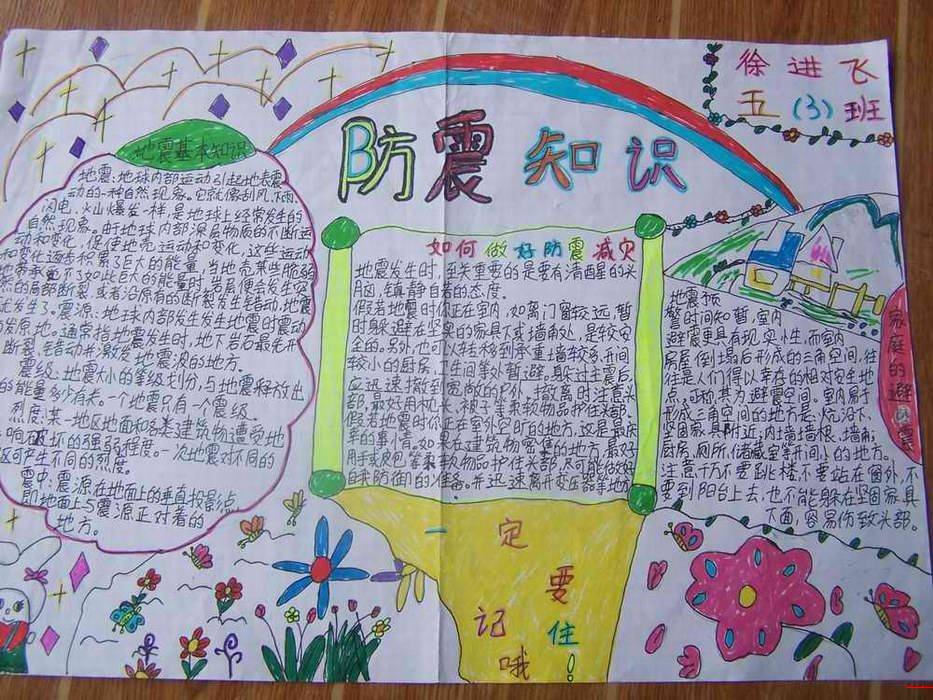 徐进飞
五(3)班
防震知识
地震基本知识
地震:地球内部运动引起地表震
动的一种自然现象。它就像刮风、下雨、
闪电、火山爆发一样,是地球上经常发生的
自然现象。由于地球内部深层物质的不断运
动和变化,促使地壳运动和变化,这些运动
和变化逐步积累了巨大的能量,当地壳某些脆弱
地带承受不了如此巨大的能量时,岩层便会发生突
然的局部断裂,或者沿原有的断裂发生错动,地震
就发生了。震源:地球内部发生发生地震时震动
的发源地。通常指地震发生时,地下岩石最先开
断裂、错动并激发地震波的地方。
震级:地震大小的等级划分,与地震释放出
的能量多少有关。一个地震只有一个震级。
烈度:某一地区地面和各类建筑物遭受地
影响破坏的强弱程度。一次地震对不同的
区可产生不同的烈度。
震中:震源在地面上的垂直投影点,
即地面上与震源正对着的
地方。
如何做好防震减灾
地震发生时,至关重要的是要有清醒的头
脑,镇静自若的态度。
假若地震时你正在室内,如离门窗较远,暂
时躲避在坚实的家具下或墙角处,是较安
全的。另外,也可以转移到承重墙较多、开间
较小的厨房、卫生间等处暂避。躲过主震后,
应迅速撤到宽敞的户外。撤离时注意头
部,最好用枕头、被子等柔软物品护住头部。
假若地震时你正在室外空旷的地方,这是最庆
幸的事情,如果在建筑物密集的地方,最好
用手或皮包等柔软物品护住头部,尽可能做好
自我防御的准备。并迅速离开变压器等地方
家庭的避震
地震预
警时间短暂,室内
避震更具有现实性,而室内
房屋倒塌后形成的三角空间,往
往是人们得以幸存的相对安全地
点,可称其为避震空间。室内易于
形成三角空间的地方是:炕沿下、
坚固家具附近;内墙墙根、墙角;
厨房、厕所、储藏室等开间小的地方。
注意千万不要跳楼,不要站在窗外,不
要到阳台上去,也不能躲在坚固家具
下面,容易伤致头部。
一定
要
记住!
哦